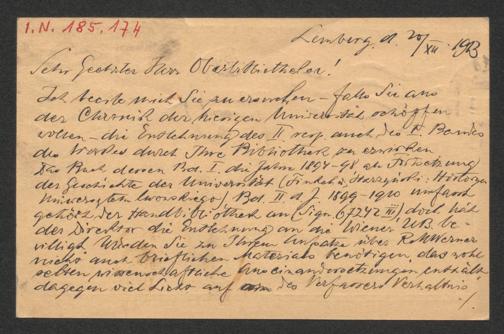 I.N. 185.174
Lemberg, d. 20/XII. 1913
Sehr Geehrter Herr Oberbibliothekar!
Ich beehre mich Sie zu ersuchen – falls Sie aus
der Chronik der hiesigen Universität schöpfen
wollen – die Entlehnung des II resp. auch des I. Bandes
des Werkes durch Ihre Bibliothek zu erwirken
Das Buch dessen Bd. I. die Jahre 1894–98 als Fortsetzung
der Geschichte der Universität (Finkel u. Starzyński: Historya
Uniwersytetu lwowskiego) Bd. II d. J. 1899–1910 umfasst
gehört der Handbibliothek an (Sign. 67242 III) doch hat
der Direktor die Entlehnung an die Wiener UB. be-
willigt. Würden Sie zu Ihrem Aufsatze über R. M. Werner
nicht auch brieflichen Materials benötigen, das wohl
selten wissenschaftliche Auseinandersetzungen enthält
dagegen viel Licht auf des Verfassers Verhältnis
./.